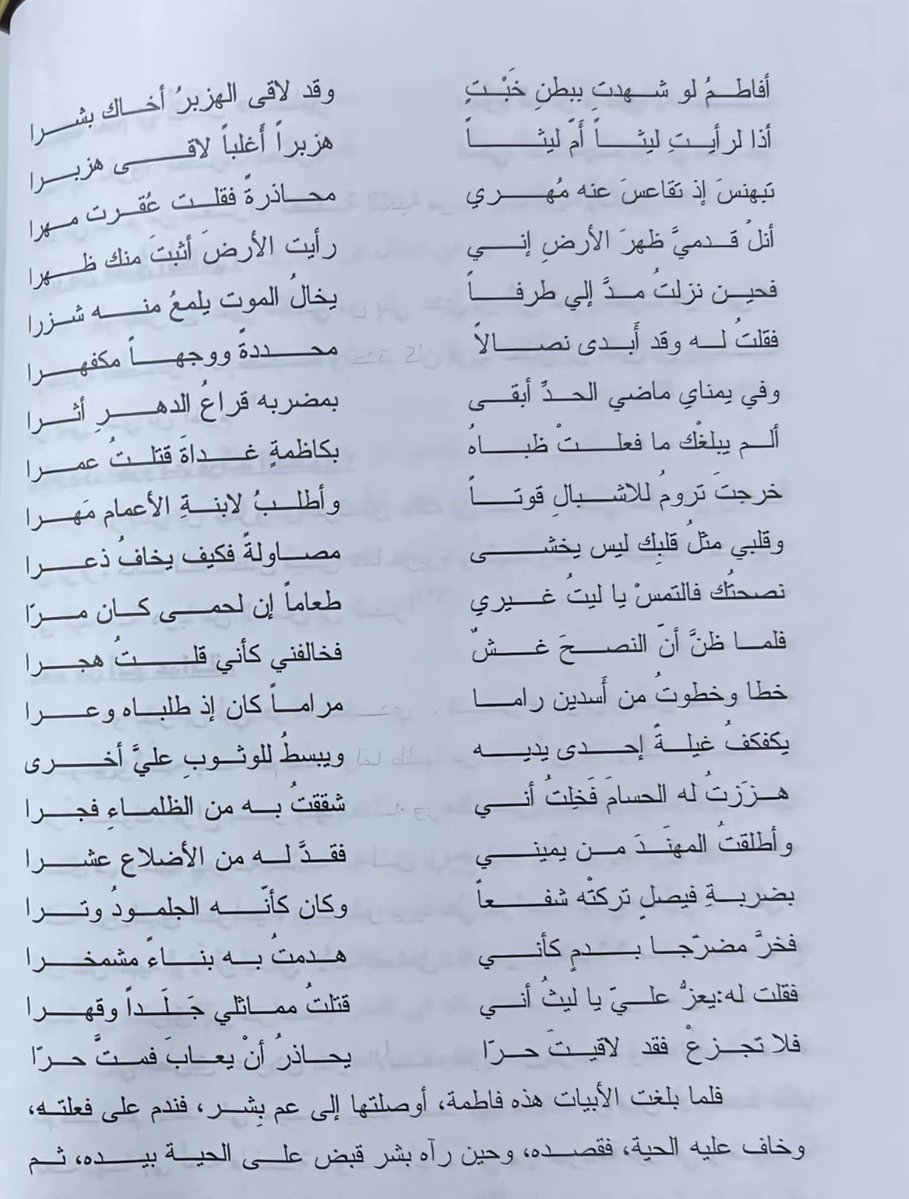 أفاطمُ لو شهدتِ ببطنِ خَبْتٍ وقد لاقى الهزبرُ أخاك بشرا
أذا لرأيتِ ليثاً أمّ ليثاً هزبراً أغلباً لاقى هزبرا
تبهنسَ إذ تقاعسَ عنه مُهري محاذرةً فقلت عُقرت مهرا
أنلْ قدميَّ ظهرَ الأرضِ إني رأيت الأرضَ أثبتَ منك ظهرا
فحين نزلتُ مدَّ إلي طرفاً يخالُ الموت يلمعُ منه شزرا
فقلتُ له وقد أَبدى نصالاً محددةً ووجهاً مكفهرا
وفي يمنايِ ماضي الحدِّ أبقى بمضربه قراعُ الدهرِ أثرا
ألم يبلغْك ما فعلتْ ظباهُ بكاظمةٍ غداةَ قتلتُ عمرا
خرجتَ ترومُ للاشبالِ قوتاً وأطلبُ لابنةِ الأعمام مَهرا
وقلبي مثلُ قلبِك ليس يخشى مصاولةً فكيف يخافُ ذعرا
نصحتُك فالتمسْ يا ليثُ غيري طعاماً إن لحمى كان مرّا
فلما ظنَّ أنّ النصحَ غشٌ فخالفني كأني قلتُ هجرا
خطا وخطوتُ من أَسدين راما مراماً كان إذ طلباه وعرا
يكفكفُ غيلةً إحدى يديه ويبسطُ للوثوبِ عليَّ أخرى
هزَزتُ له الحسامَ فَخِلتُ أني شققتُ به من الظلماءِ فجرا
وأطلقتُ المهنَدَ من يميني فقدَّ له من الأضلاع عشرا
بضربةِ فيصلٍ تركتْه شفعاً وكان كأنّه الجلمودُ وترا
فخرَّ مضرّجا بدمٍ كأني هدمتُ به بناءً مشمخرا
فقلت له:يعزُّ عليّ يا ليثُ أني قتلتُ مماثلي جَلَداً وقهرا
فلا تجزعْ فقد لاقيتَ حرّا يحاذرُ أنْ يعابَ فمتَّ حرّا
فلما بلغت الأبيات هذه فاطمة، أوصلتها إلى عم بِشر، فندم على فعلته،
وخاف عليه الحية، فقصده، وحين رآه بشر قبض على الحية بيده، ثم